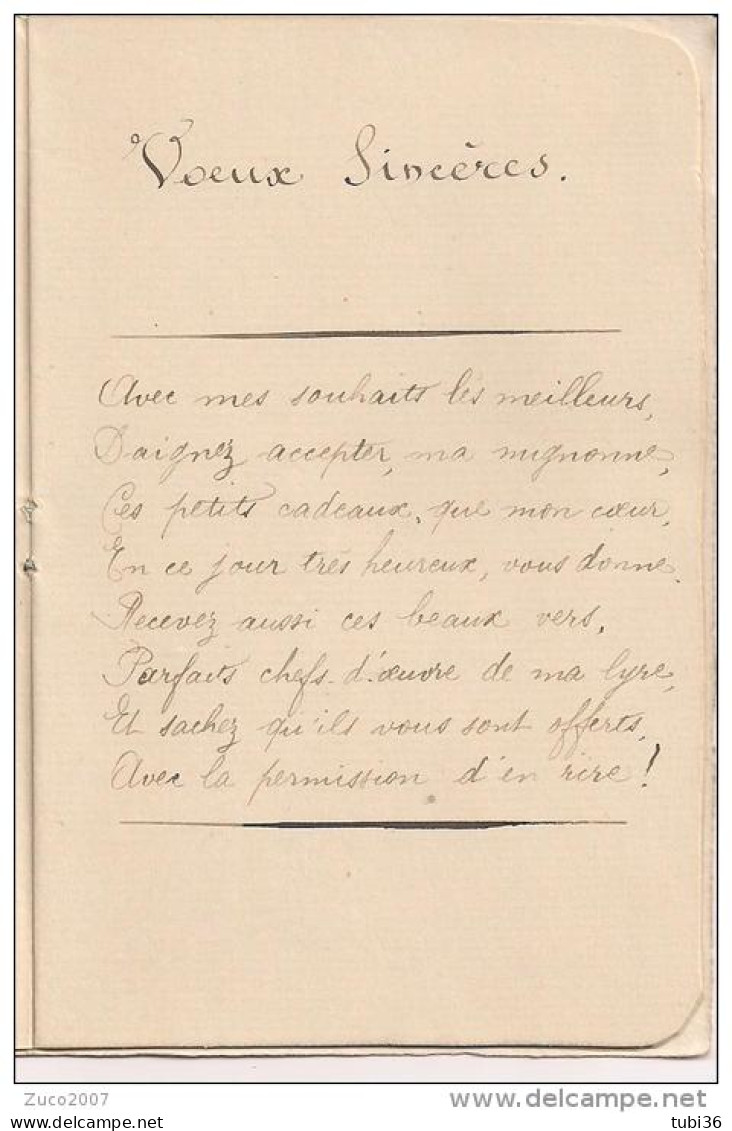 Voeux Sincères.
Avec mes souhaits les meilleurs,
Daignez accepter, ma mignonne,
Ces petits cadeaux, que mon cœur,
En ce jour très heureux, vous donne.
Recevez aussi ces beaux vers,
Parfaits chefs-d'œuvre de ma lyre,
Et sachez qu'ils vous sont offerts,
Avec la permission d'en rire!
Zuco2007
www.delcampe.net
tubi36